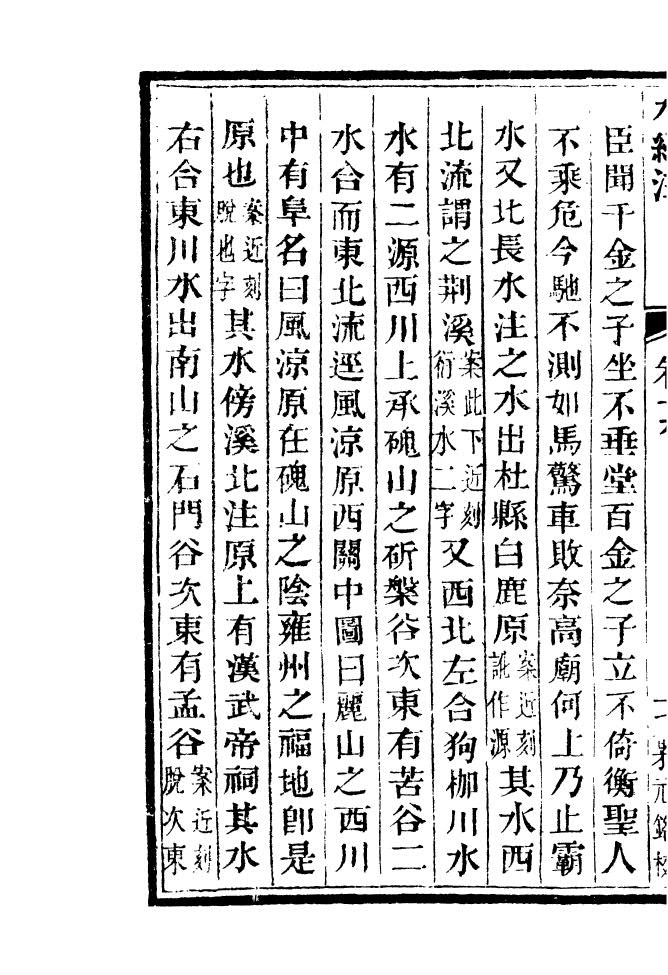 臣聞千金之子坐不垂堂百金之子立不倚衡聖人
不乘危今馳不測如馬驚車敗奈高廟何上乃止霸
水又北長水注之水出杜縣白鹿原案近刻訛作源其水西
北流謂之荆溪案此下近刻衍溪水二字又西北左合狗枷川水
水有二源西川上承磈山之斫槃谷次東有苦谷二
水合而東北流逕風涼原西關中圖曰麗山之西川
中有阜名曰風涼原在磈山之陰雍州之福地卽是
原也案近刻脫也字其水傍溪北注原上有漢武帝祠其水
右合東川水出南山之石門谷次東有孟谷案近刻脫次東